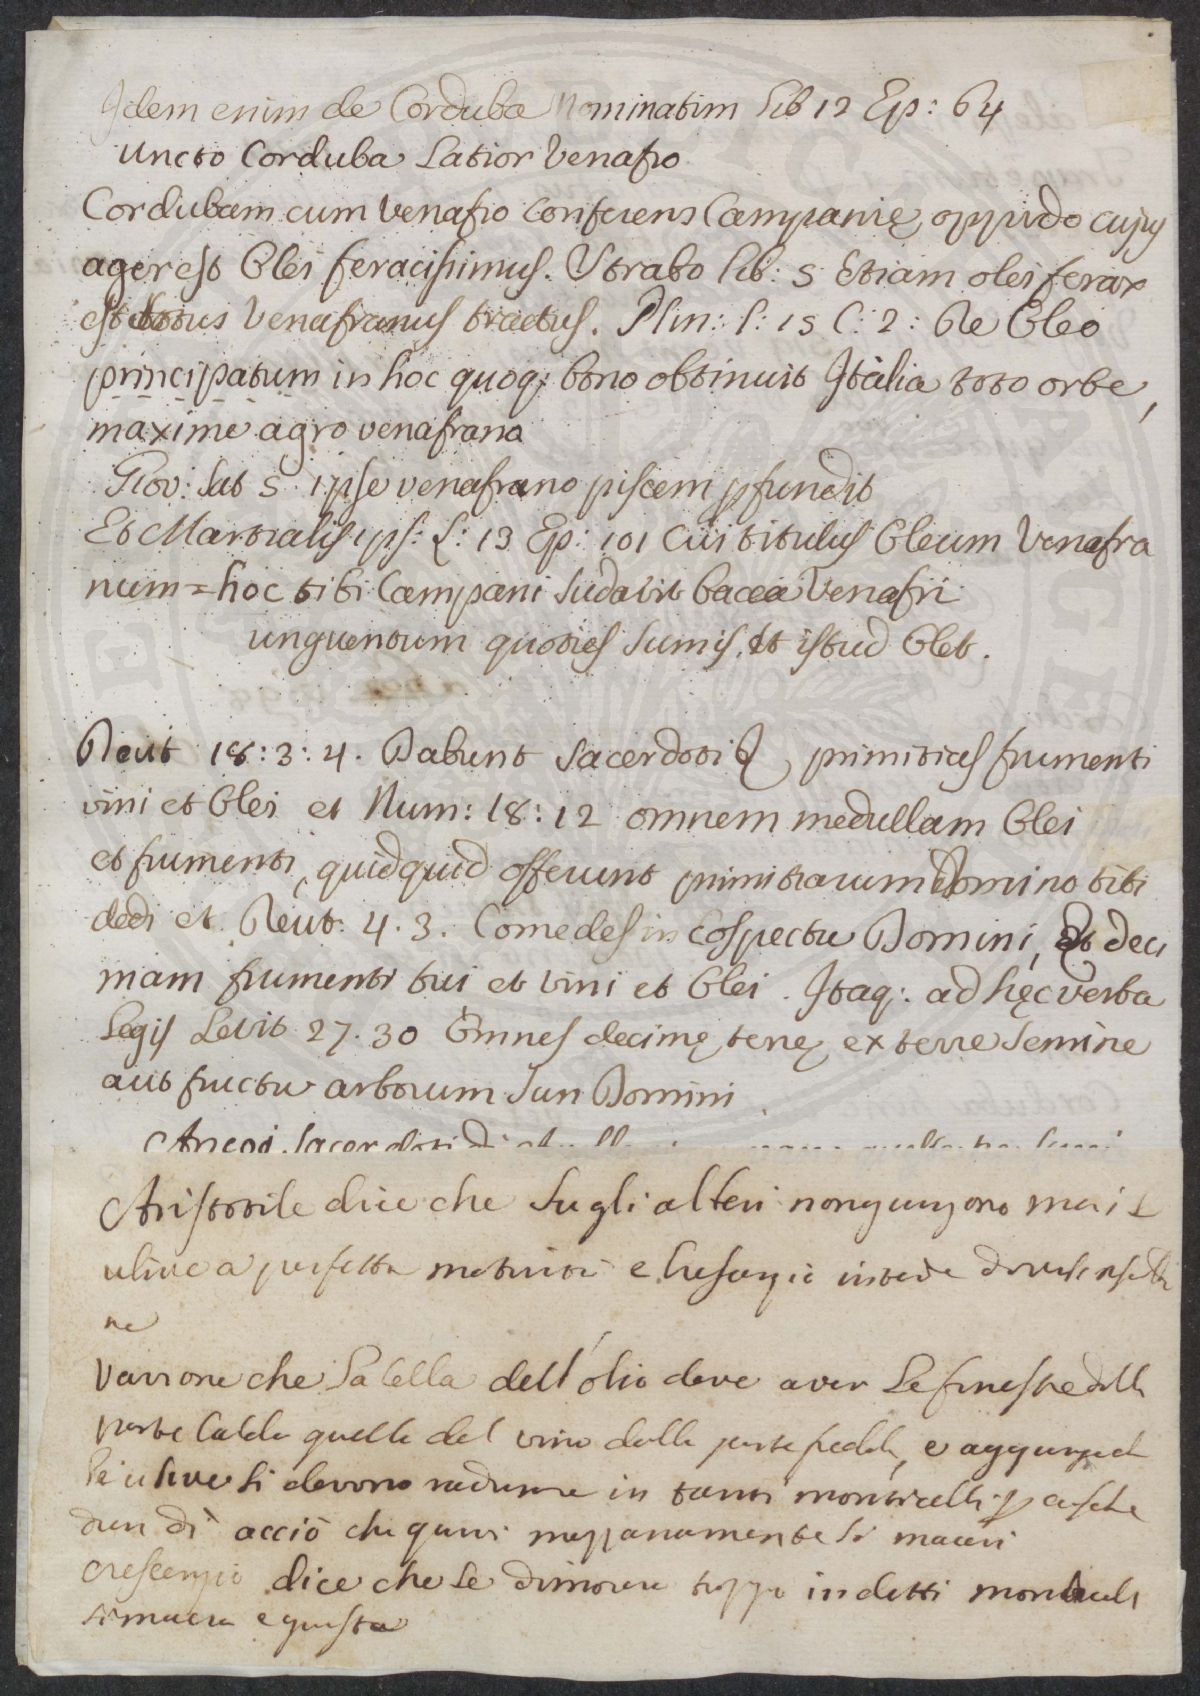 Idem enim de Corduba Nominatim lib 12 Ep: 64
Uncto Corduba Latior Venafro
Cordubam cum Venafro Conferens Campanię oppido cujus
ager est Olei feracissimus. Strabo lib: 5 Etiam olei ferax
est totus Venafranus tractus. Plin: l: 15 C: 2: De Oleo
principatum in hoc quoq: bono obtinuit Itàlia toto orbe,
maxime agro venafrano
Giov: Sat 5 ipse venafrano piscem pfundit
Et Martialis ips: L: 13 Ep: 101 Cui titulus Oleum Venafra
num = hoc tibi Campani Sudavit bacca Venafri
unguentum quoties Sumis, et istud Olet.
Deut 18:3:4. Dabunt Sacerdoti primitias frumenti
vini et Olei et Num: 18:12 omnem medullam Olei
et frumenti, quidquid offerunt primitiarum Domino tibi
dedi et Deut. 4.3. Comedes in Cospectu Domini, Et deci
mam frumenti tui et vini et Olei. Itaq: ad hęc verba
Legis Levit 27.30 Omnes decimę terrę ex terre Semine
aut fructu arborum Sun Domini
Aristotile dice che Sugli alteri non giungono mai L
ulive a perfetta maturità e
ne
Varrone che La Cella dell'olio deve aver Le finestre dalla
parte Calda quella del vino dalla parte fredda, e aggiunge ch
l'ulive si devono radunare in tanti monticelli p
dun dì acciò che quivi mezzanamente Si maceri
Crescenzio dice che Se dimorera troppo in detti monticelli
si macera e guasta